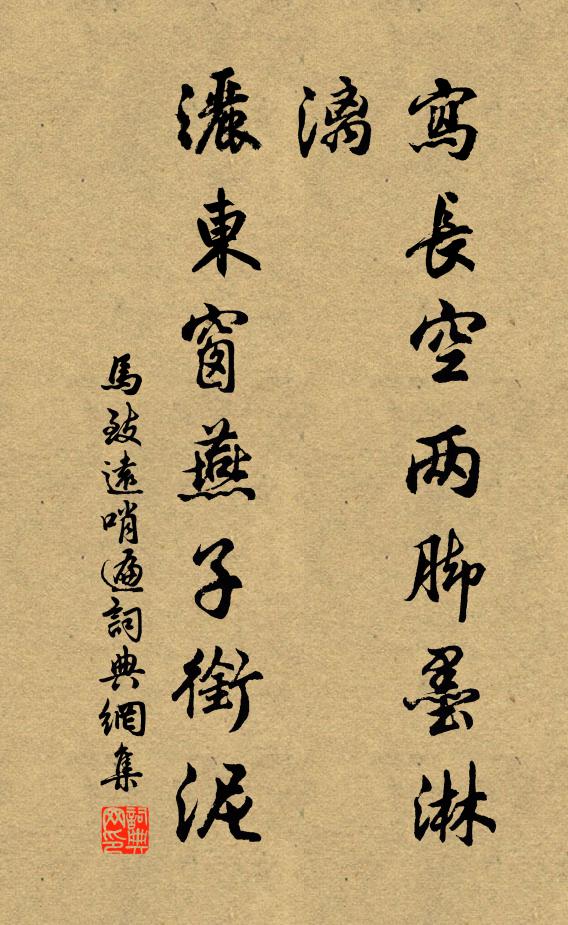 寫長空两脚墨淋
漓
灑東窗燕子銜泥
馬致遠哨遍詞典網集
詞典网印